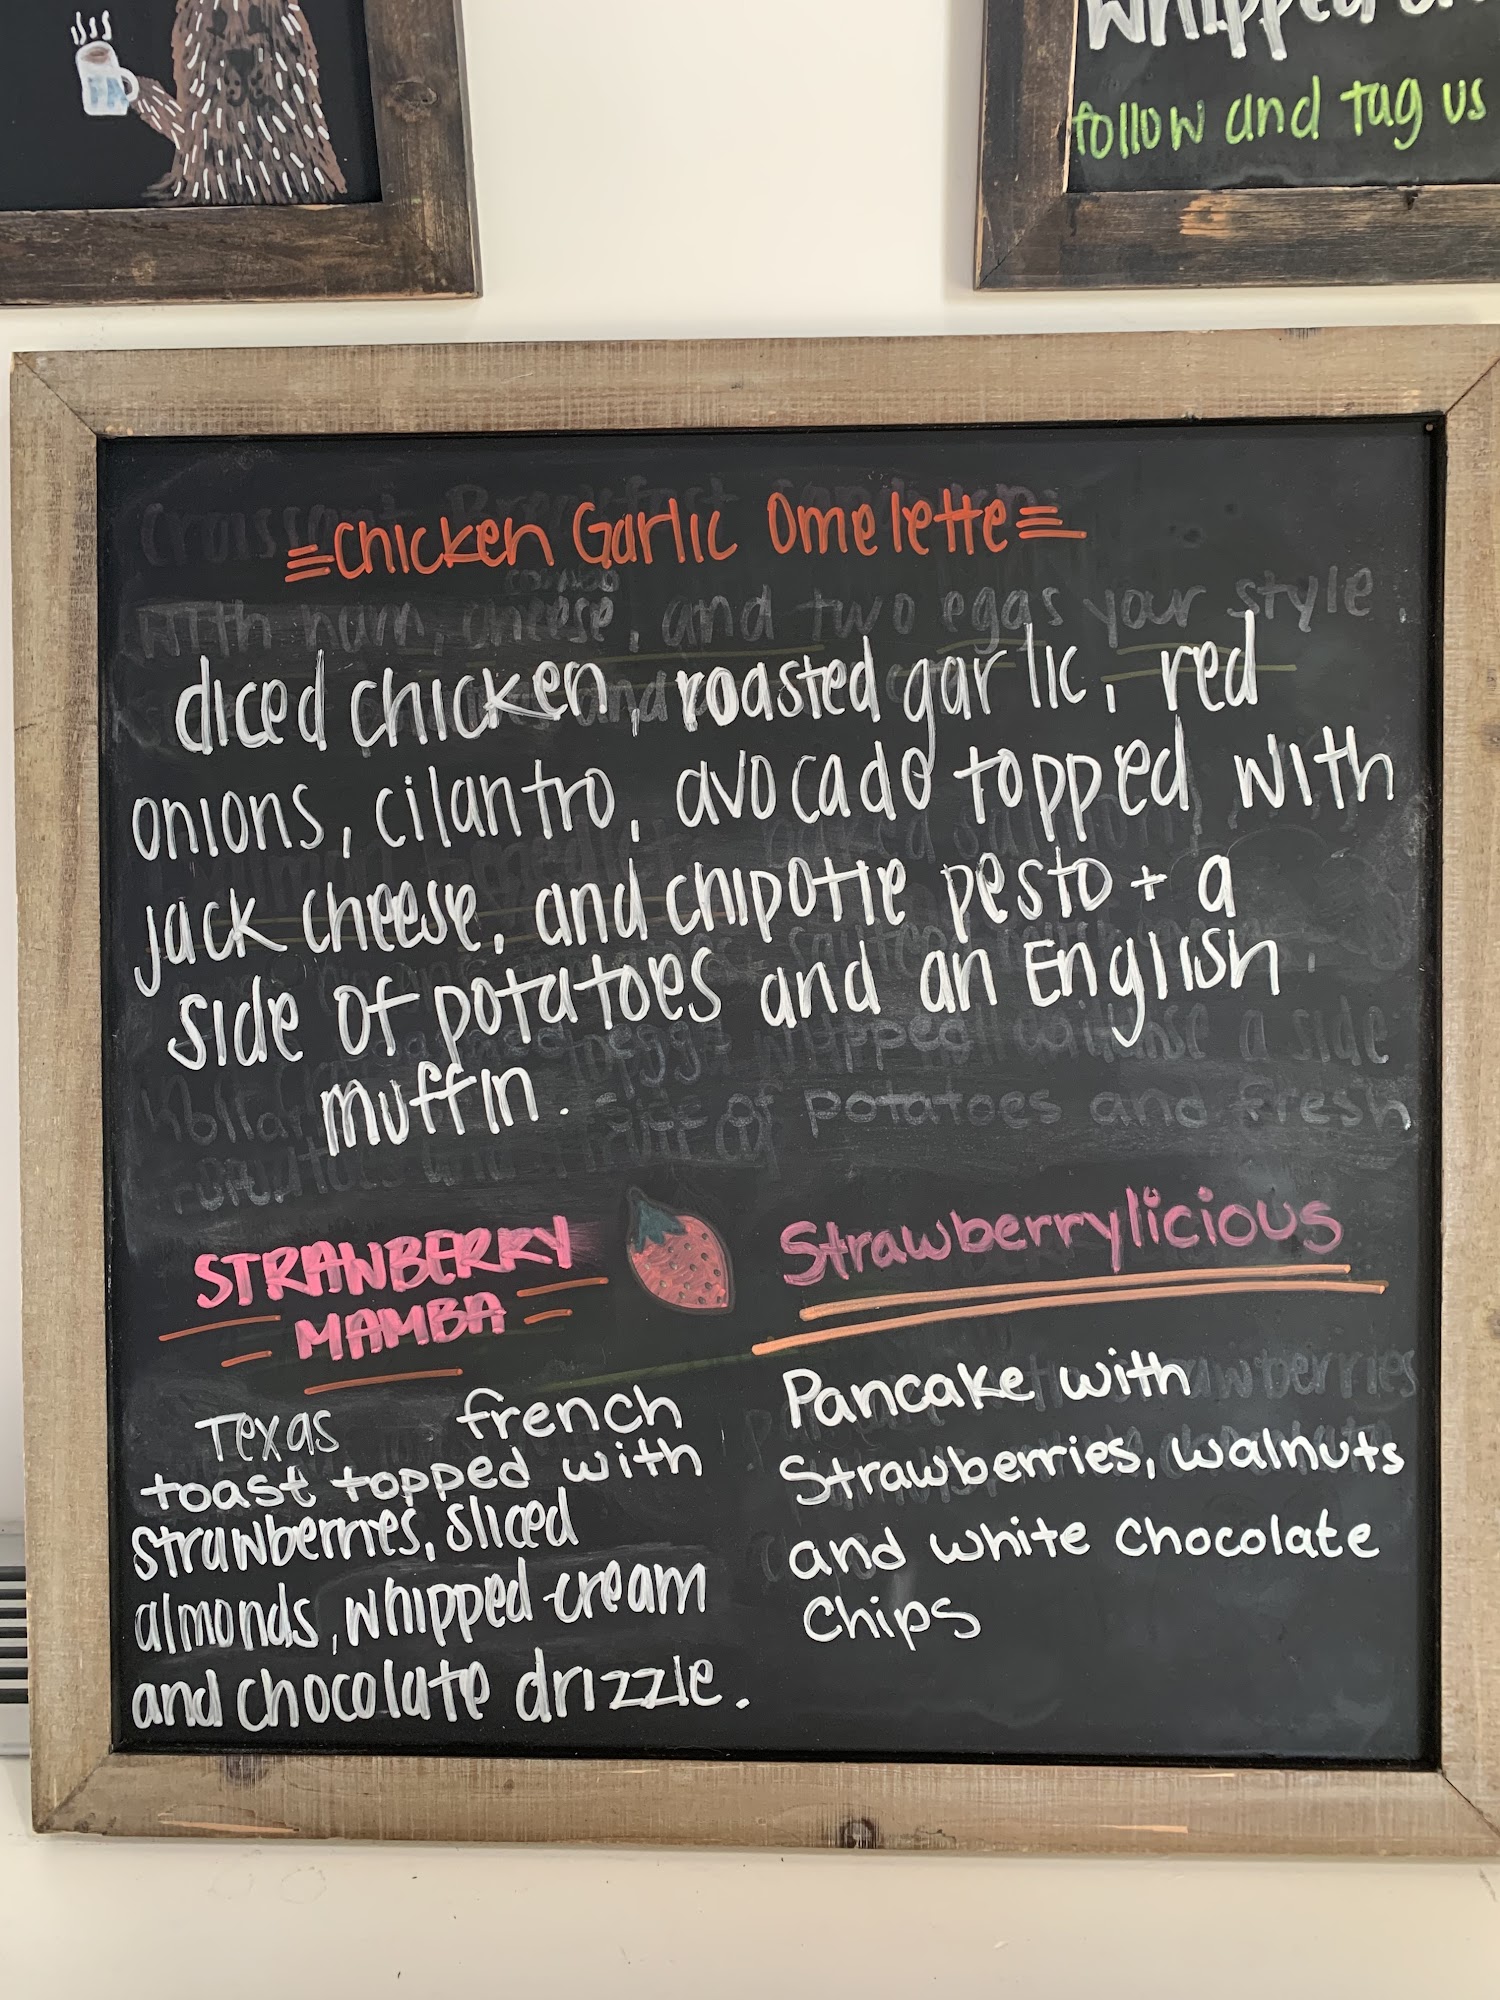 follow and tag us
Chicken Garlic Omelette
diced chicken, roasted garlic, red
onions, cilantro, avocado topped with
jack cheese, and chipotle pesto + a
side of potatoes and an English
muffin.
STRAWBERRY
MAMBA
Texas french
toast topped with
strawberries, sliced
almonds, whipped cream
and chocolate drizzle.
Strawberrylicious
Pancake with
Strawberries, walnuts
and white chocolate
Chips